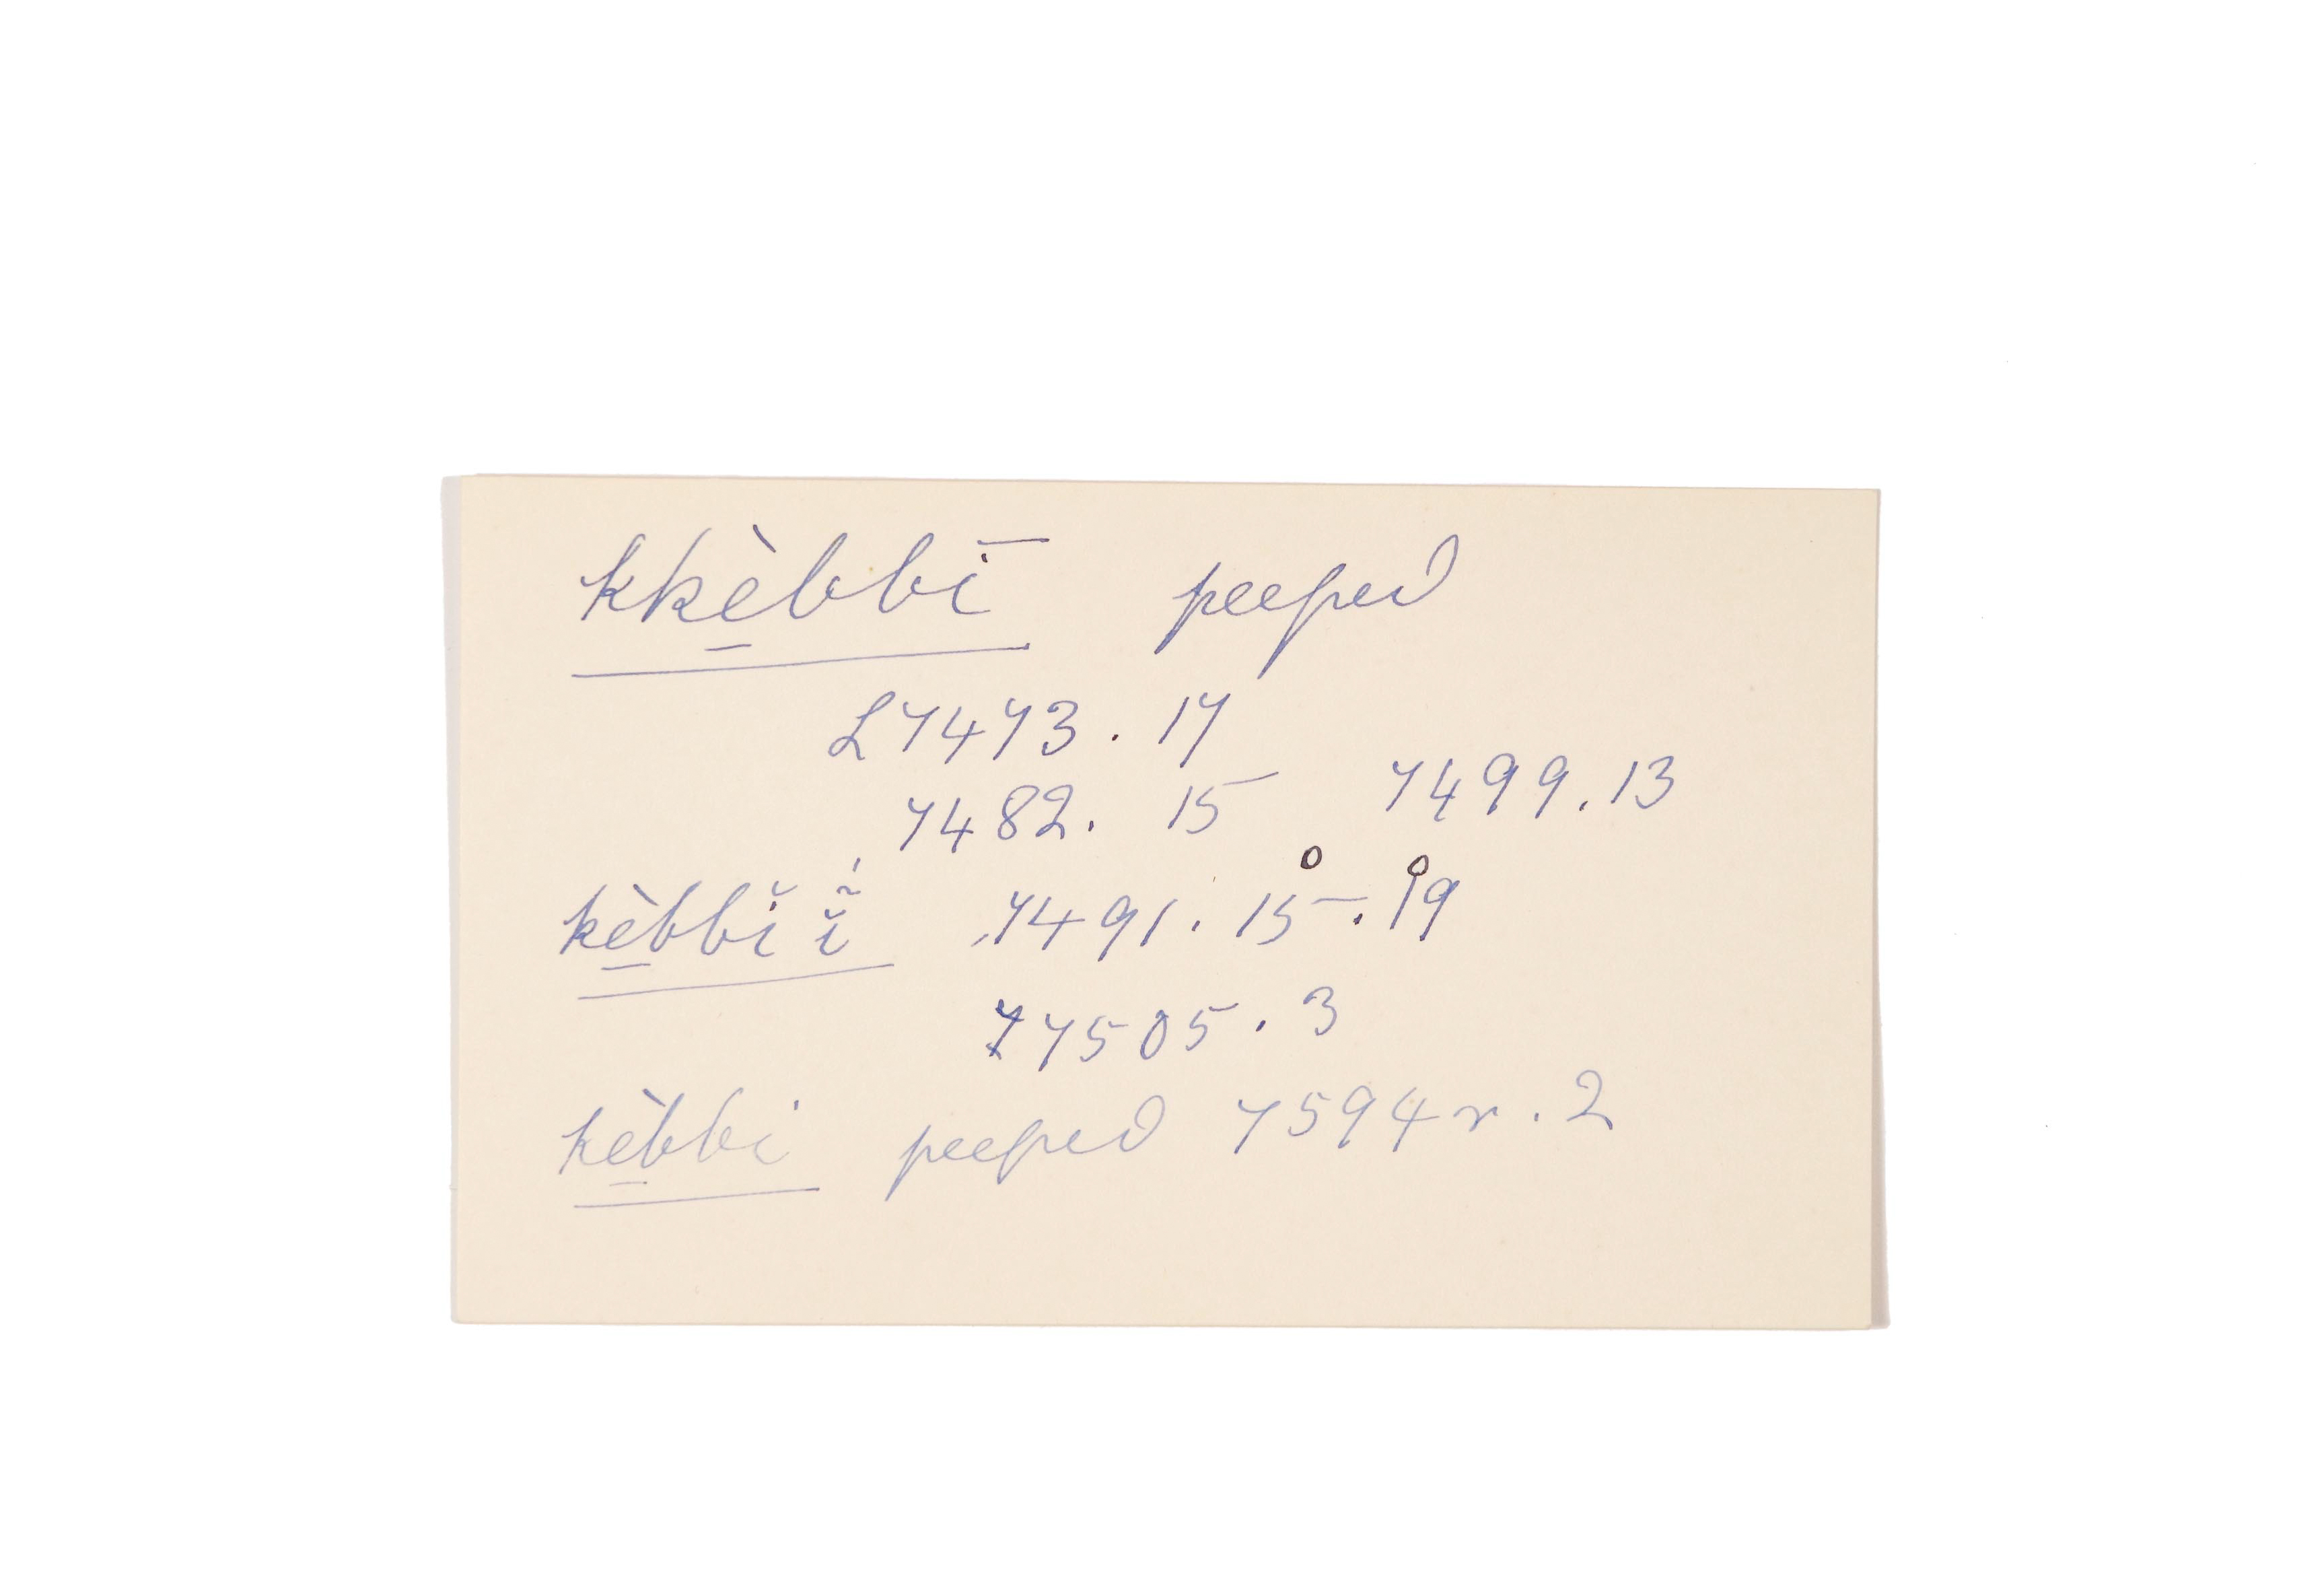 kkè̱bbī peeped
L7473.17
7482. 15 7499.13
kè̱bbĭ ĭ̃́ 7491. 15. 19
77505.3
kè̱bbi peeped 7594r.2